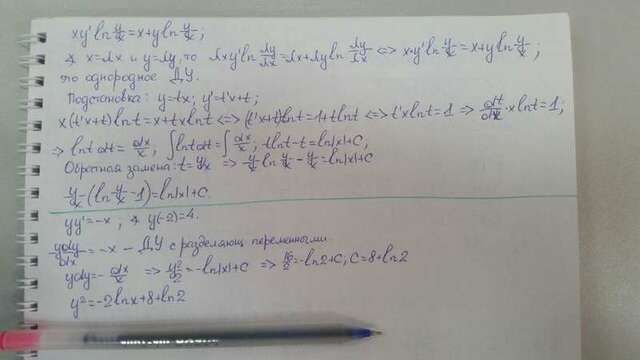 xy'ln y/x = x+yln y/x;
x=λx и y=λy, то λxy'ln λy/λx = λx+λyln λy/λx <=> x·y'ln y/x = x+yln y/x;
это однородное ДУ.
Подстановка: y=tx; y'=t'x+t;
x(t'x+t)ln t = x+tx ln t <=> (t'x+t)ln t = 1+t ln t <=> t'x ln t = 1 => dt/dx · x ln t = 1;
=> ln t dt = dx/x; ∫ln t dt = ∫dx/x; t ln t - t = ln|x|+C,
Обратная замена: t=y/x => y/x ln y/x - y/x = ln|x|+C
y/x (ln y/x - 1) = ln|x|+C.
yy'=-x; y(-2)=4.
ydy/dx = -x - ДУ с разделяющ. переменными.
ydy = -dx/x => y²/2 = -ln|x|+C => 16/2 = -ln2+C; C=8+ln2
y²=-2lnx+8+ln2